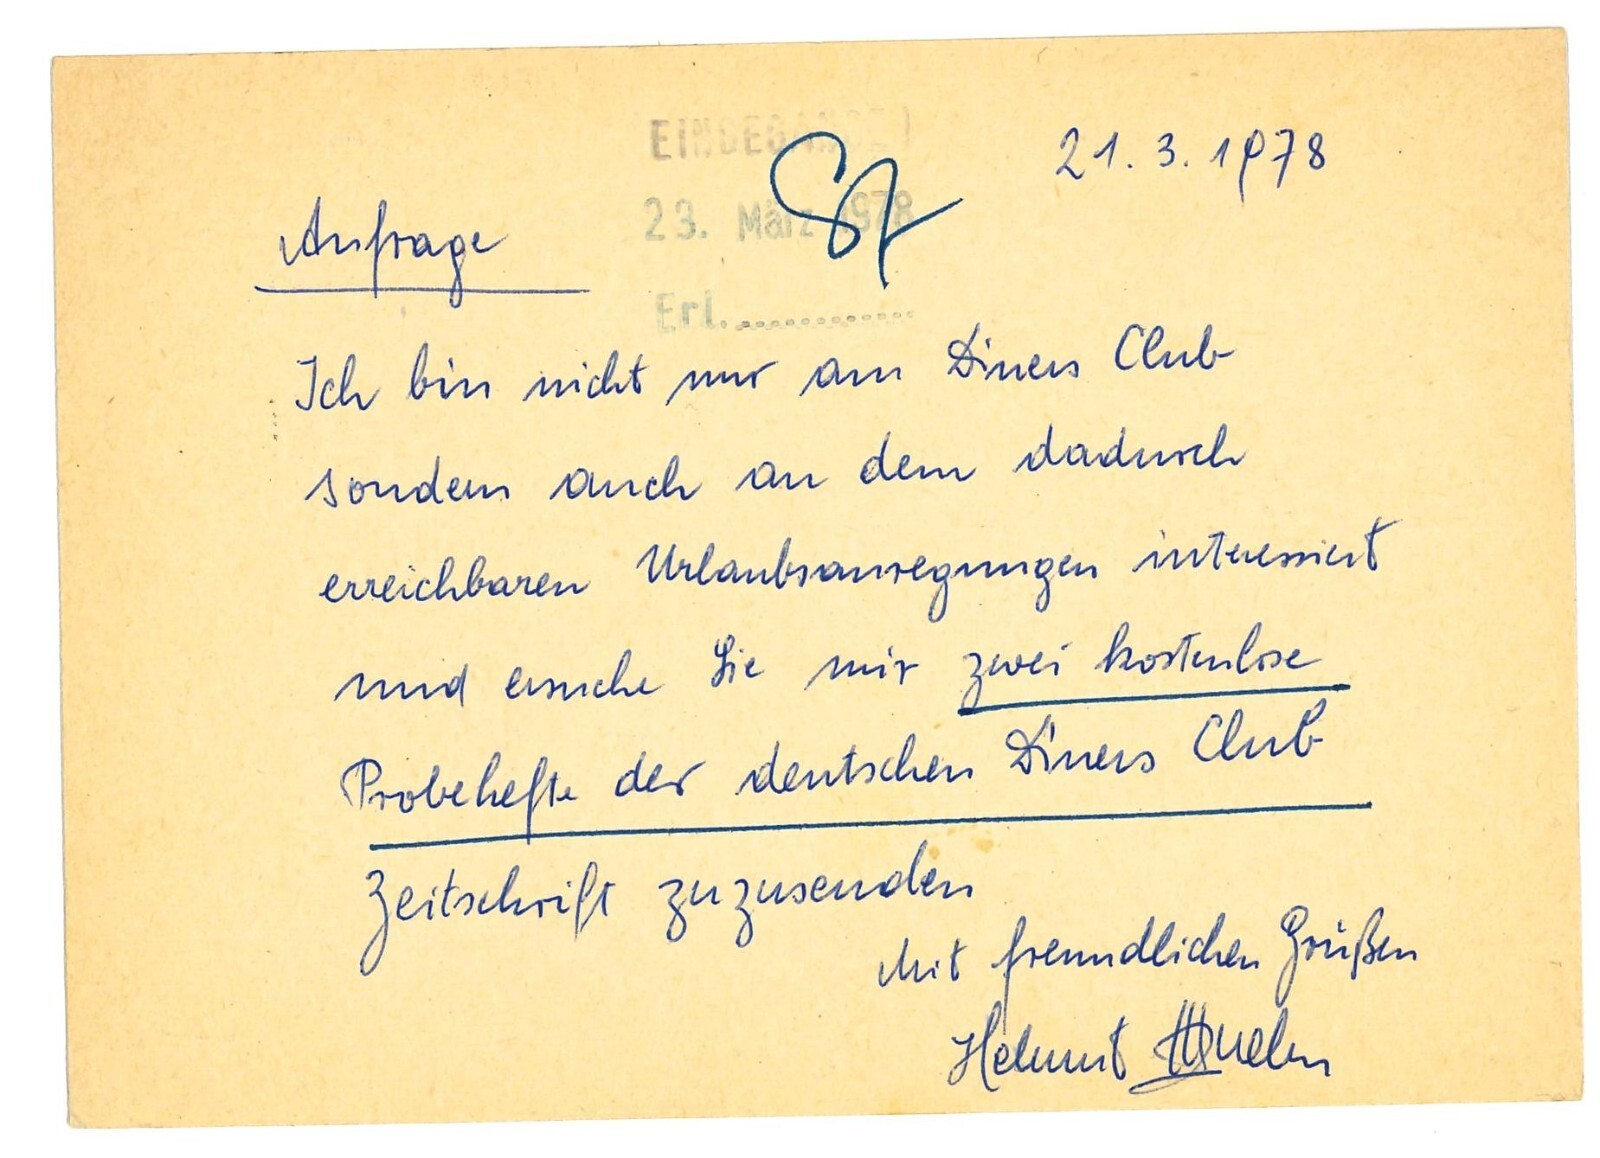 EINGEGANGEN
21. 3. 1978
23. März 1978
Anfrage
Erl.............
Ich bin nicht nur am Diners Club
sondern auch an dem dadurch
erreichbaren Urlaubsanregungen interessiert
und ersuche Sie mir zwei kostenlose
Probehefte der deutschen Diners Club
Zeitschrift zuzusenden
Mit freundlichen Grüßen
Helmut